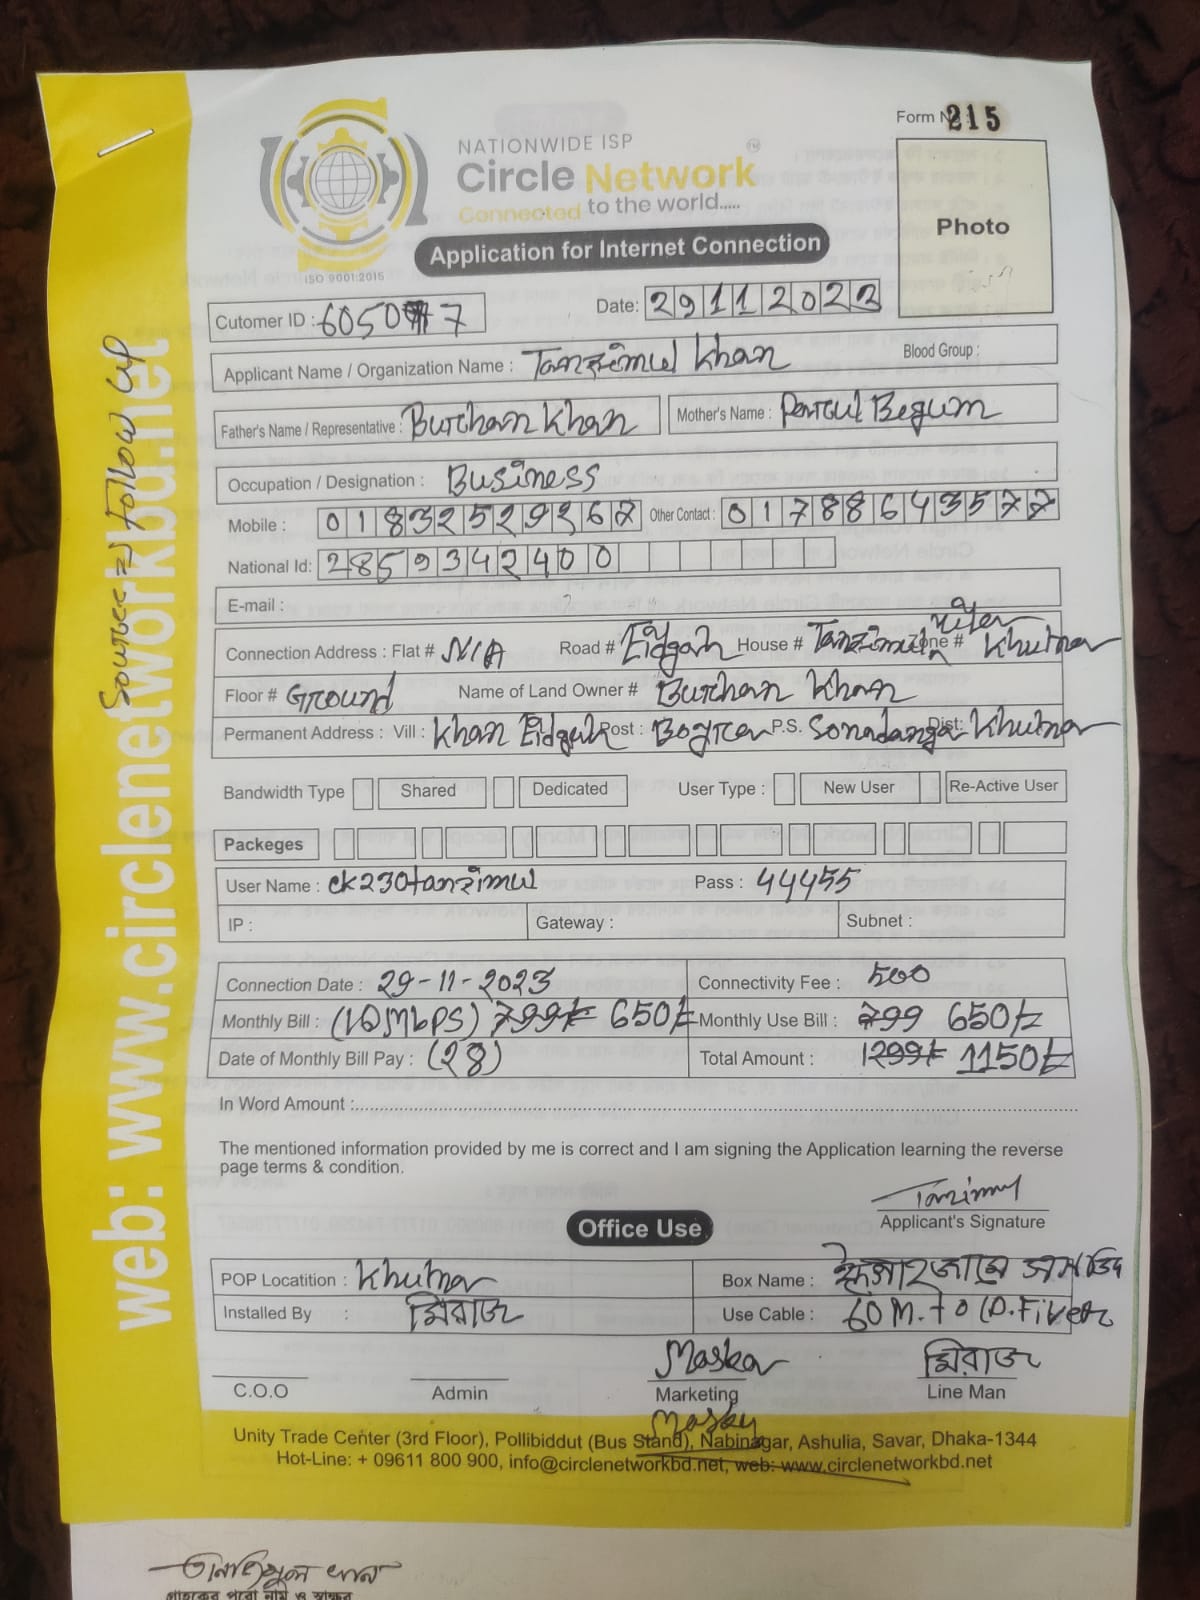 Form No : 215
NATIONWIDE ISP
Circle Network
TM
Connected to the world.....
ISO 9001:2015
Application for Internet Connection
Photo
Cutomer ID : 6050 7
Date: 29112023
Applicant Name / Organization Name : Tanzimul Khan Blood Group :
Father's Name / Representative : Burhan Khan Mother's Name : Parul Begum
Occupation / Designation : Business
Mobile : 01832529267 Other Contact : 01788643577
National Id: 2859342400
E-mail :
Connection Address : Flat # N/A Road # Eidgah House # Tanzimul Zone # Khulna
Floor # Ground Name of Land Owner # Burhan Khan
Permanent Address : Vill : Khan Eidgah Post : Bogra P.S. Sonadanga Dist: Khulna
Bandwidth Type Shared Dedicated User Type : New User Re-Active User
Packeges
User Name : ck230tanzimul Pass : 44455
IP : Gateway : Subnet :
Connection Date : 29-11-2023 Connectivity Fee : 500
Monthly Bill : (10Mbps) 799/- 650/- Monthly Use Bill : 799 650/-
Date of Monthly Bill Pay : (28) Total Amount : 1299/- 1150/-
In Word Amount :
The mentioned information provided by me is correct and I am signing the Application learning the reverse
page terms & condition.
Tanzimul
Applicant's Signature
Office Use
POP Locatition : Khulna Box Name :
Installed By : মিরাজ Use Cable : 60 M.
C.O.O Admin Marketing মিরাজ Line Man
Unity Trade Center (3rd Floor), Pollibiddut (Bus Stand), Nabinagar, Ashulia, Savar, Dhaka-1344
Hot-Line: + 09611 800 900, info@circlenetworkbd.net, web: www.circlenetworkbd.net
web: www.circlenetworkbd.net
Sources => Follow up
তানজিমুল খান
গ্রাহকের পুরো নাম ও স্বাক্ষর